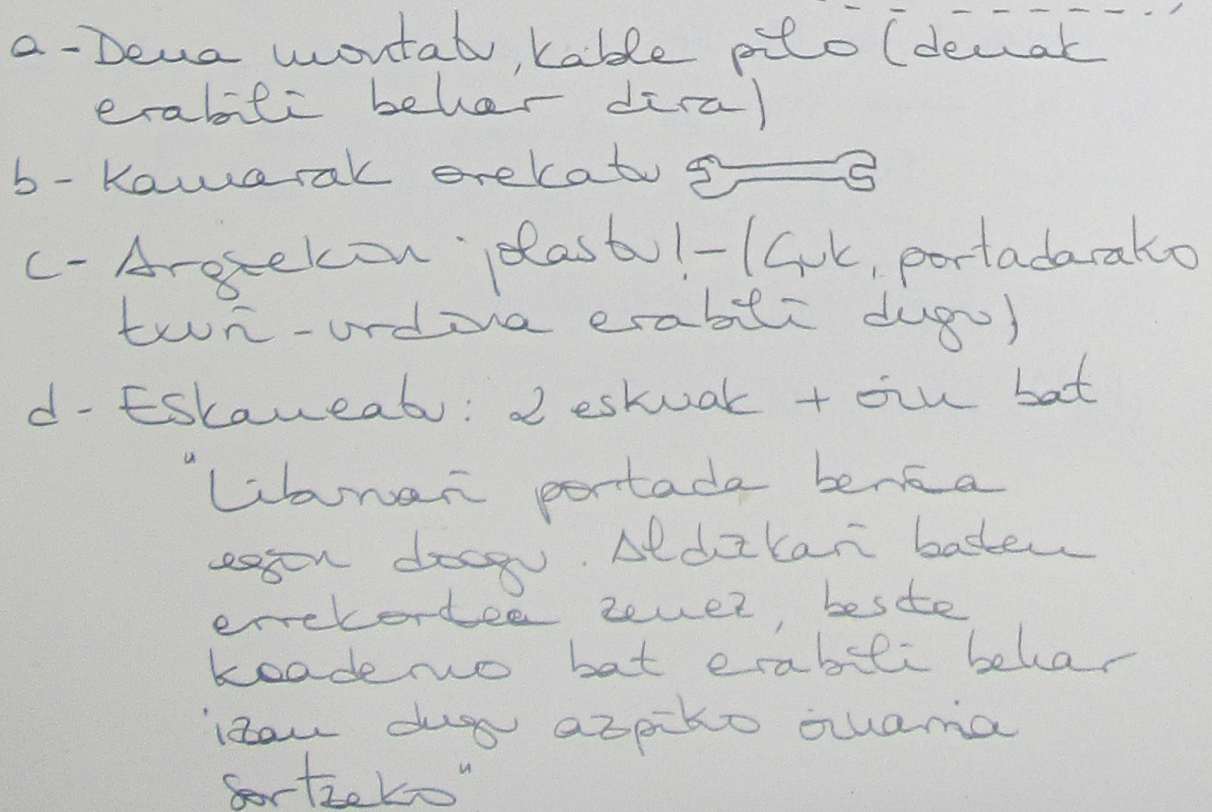 a - Dena montatu, kable pilo (denak
erabili behar dira)
b - Kamarak orekatu
c - Argiekin jolastu! - (Guk, portadarako
txuri-urdina erabili dugu)
d - Eskaneatu: 2 eskuak + oin bat
"Liburuari portada berria
egin diogu. Aldizkari baten
errekortea zenez, beste
koaderno bat erabili behar
izan dugu azpiko oinarria
sortzeko"